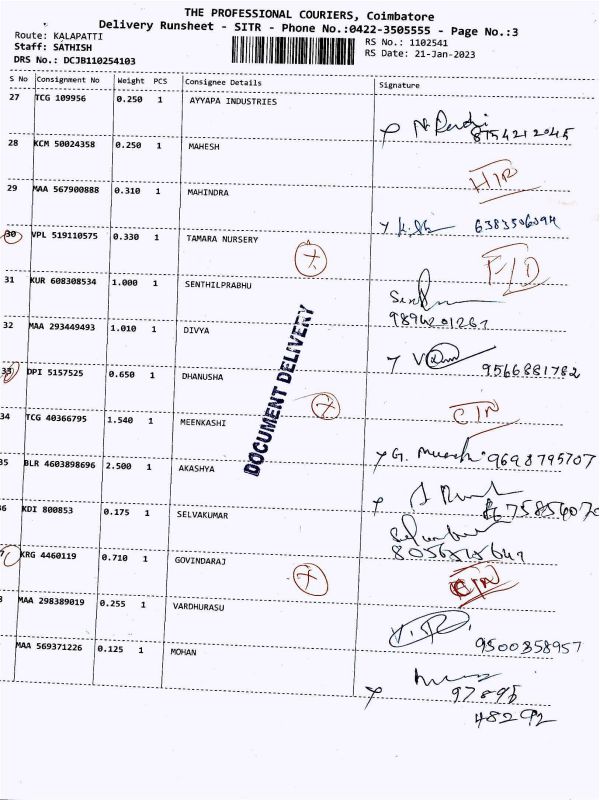 THE PROFESSIONAL COURIERS, Coimbatore
Delivery Runsheet - SITR - Phone No.:0422-3505555 - Page No.:3
Route: KALAPATTI
RS No.: 1102541
Staff: SATHISH
RS Date: 21-Jan-2023
DRS No.: DCJB110254103
S No Consignment No Weight PCS Consignee Details Signature
27 TCG 109956 0.250 1 AYYAPA INDUSTRIES
8754212045
28 KCM 50024358 0.250 1 MAHESH
29 MAA 567900888 0.310 1 MAHINDRA
6383506094
30 VPL 519110575 0.330 1 TAMARA NURSERY
31 KUR 608308534 1.000 1 SENTHILPRABHU
9894201267
32 MAA 293449493 1.010 1 DIVYA
9566881782
33 DPI 5157525 0.650 1 DHANUSHA
34 TCG 40366795 1.540 1 MEENKASHI
9698795707
35 BLR 4603898696 2.500 1 AKASHYA
36 KDI 800853 0.175 1 SELVAKUMAR
7 KRG 4460119 0.710 1 GOVINDARAJ
MAA 298389019 0.255 1 VARDHURASU
9500858957
MAA 569371226 0.125 1 MOHAN
97895
48292
DOCUMENT DELIVERY